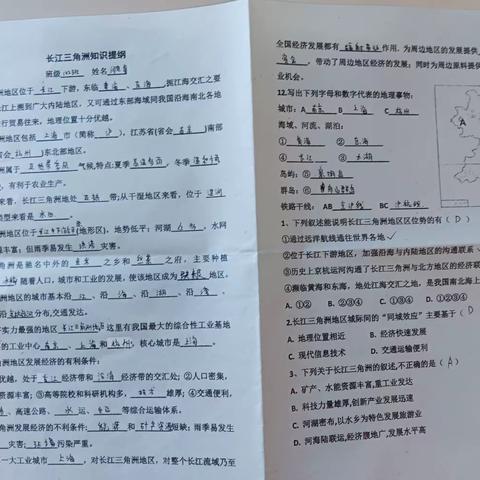 长江三角洲知识提纲
班级 姓名
地区位于 长江 下游，东临 黄海 、 东海 ，扼江海交汇之要
长江上溯到广大内陆地区，又可通过东部海域同我国沿海南北各地
行贸易往来，地理位置十分优越。
洲地区包括 上海 市（简称 沪 ），江苏省(省会 南京 )南部
省会 杭州 )东北部地区。
洲属于 气候,特点:夏季 高温多雨 ，冬季 温和
，有利于农业生产。
来看，长江三角洲地处 带;从干湿地区来看，位于 湿润
类型来看是 水田
地区位于 (地形区)，地势低平；河湖 ，水网
丰富；但雨季易发生 洪涝 灾害。
角洲是驰名中外的 鱼米 之乡和 丝绸 之府，主要种植
随着人口，城市和工业的发展，使该地区成为 地区
洲地区的城市基本沿 江 、沿 海 、沿 湖 、沿
沿 分布,交通发达。
济实力最强的地区 这里有我国最大的综合性工业基地
的工业中心 南京 、 上海 和 杭州 ，核心城市是 上海 。
角洲地区发展经济的有利条件:
优越，处于 长江 经济带和 沿海 经济带的交汇处；②人口密集，
资源丰富；③高等院校和科研机构多， 技术 雄厚；④交通便利，
、高速公路、 水 运、 等综合运输体系。
角洲发展经济的不利条件: 能源 和 矿产资源 短缺；雨季易发生
灾害； 污染严重。
一大工业城市 上海 ，对长江三角洲地区，对整个长江流域乃至
全国经济发展都有 辐射带动 作用. 为周边地区的发展提供
资金 ，带动了周边地区经济的发展；同时为周边原料提供
业机会。
12.写出下列字母和数字代表的地理事物:
城市: A 南京 B 上海 C 杭州
海域、河流、湖泊:
① 黄海 ② 东海
③ 长江 ④ 太湖
岛屿: ⑤ 崇明岛
群岛: ⑥ 舟山群岛
铁路干线: A 京沪线 BC 沪杭线
A
1、下列叙述能说明长江三角洲地区区位优势的有（ D ）
①通过远洋航线通往世界各地
②位于长江下游地区，加强沿海与内陆地区的沟通联系
③历史上京杭运河沟通了长江三角洲与北方地区的经济联
④濒临黄海和东海，地处江海交汇之地，是我国南北海上
A. ①② B. ①②③ C. ①③④ D. ①②③④
2.长江三角洲地区城际间的“同城效应”主要基于（ D
A. 地理位置相近 B. 经济快速发展
C. 现代信息技术 D. 交通运输便利
3、下列关于长江三角洲的叙述,不正确的是（ A ）
A. 矿产、水能资源丰富,重工业发达
B. 科技力量雄厚,创新产业发展迅速
C. 河湖密布,以水乡为特色发展旅游业
D. 河海陆联运,经济腹地广,发展水平高